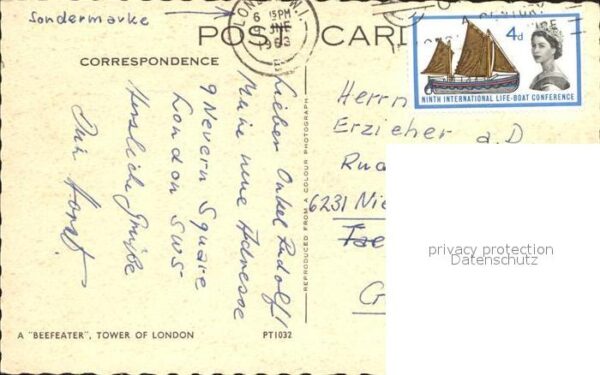 Sondermarke
LONDON W.1
6 15PM
JNE
1963
POST CARD
4d
NINTH INTERNATIONAL LIFE-BOAT CONFERENCE
CORRESPONDENCE
Lieber Onkel Rudolf!
Meine neue Adresse
9 Nevern Square
London SW5
Herzliche Grüße
Dein Horst.
REPRODUCED FROM A COLOUR PHOTOGRAPH
Herrn
Erzieher a.D.
6231 Nie
G
privacy protection
Datenschutz
A "BEEFEATER", TOWER OF LONDON
PT1032